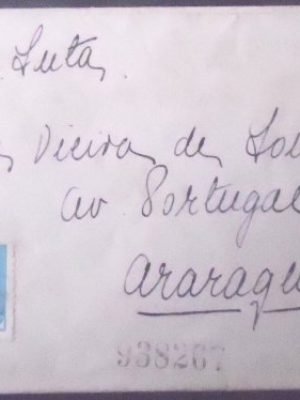 Luta
Vieira de
Av Portugal
Araraqu
938267